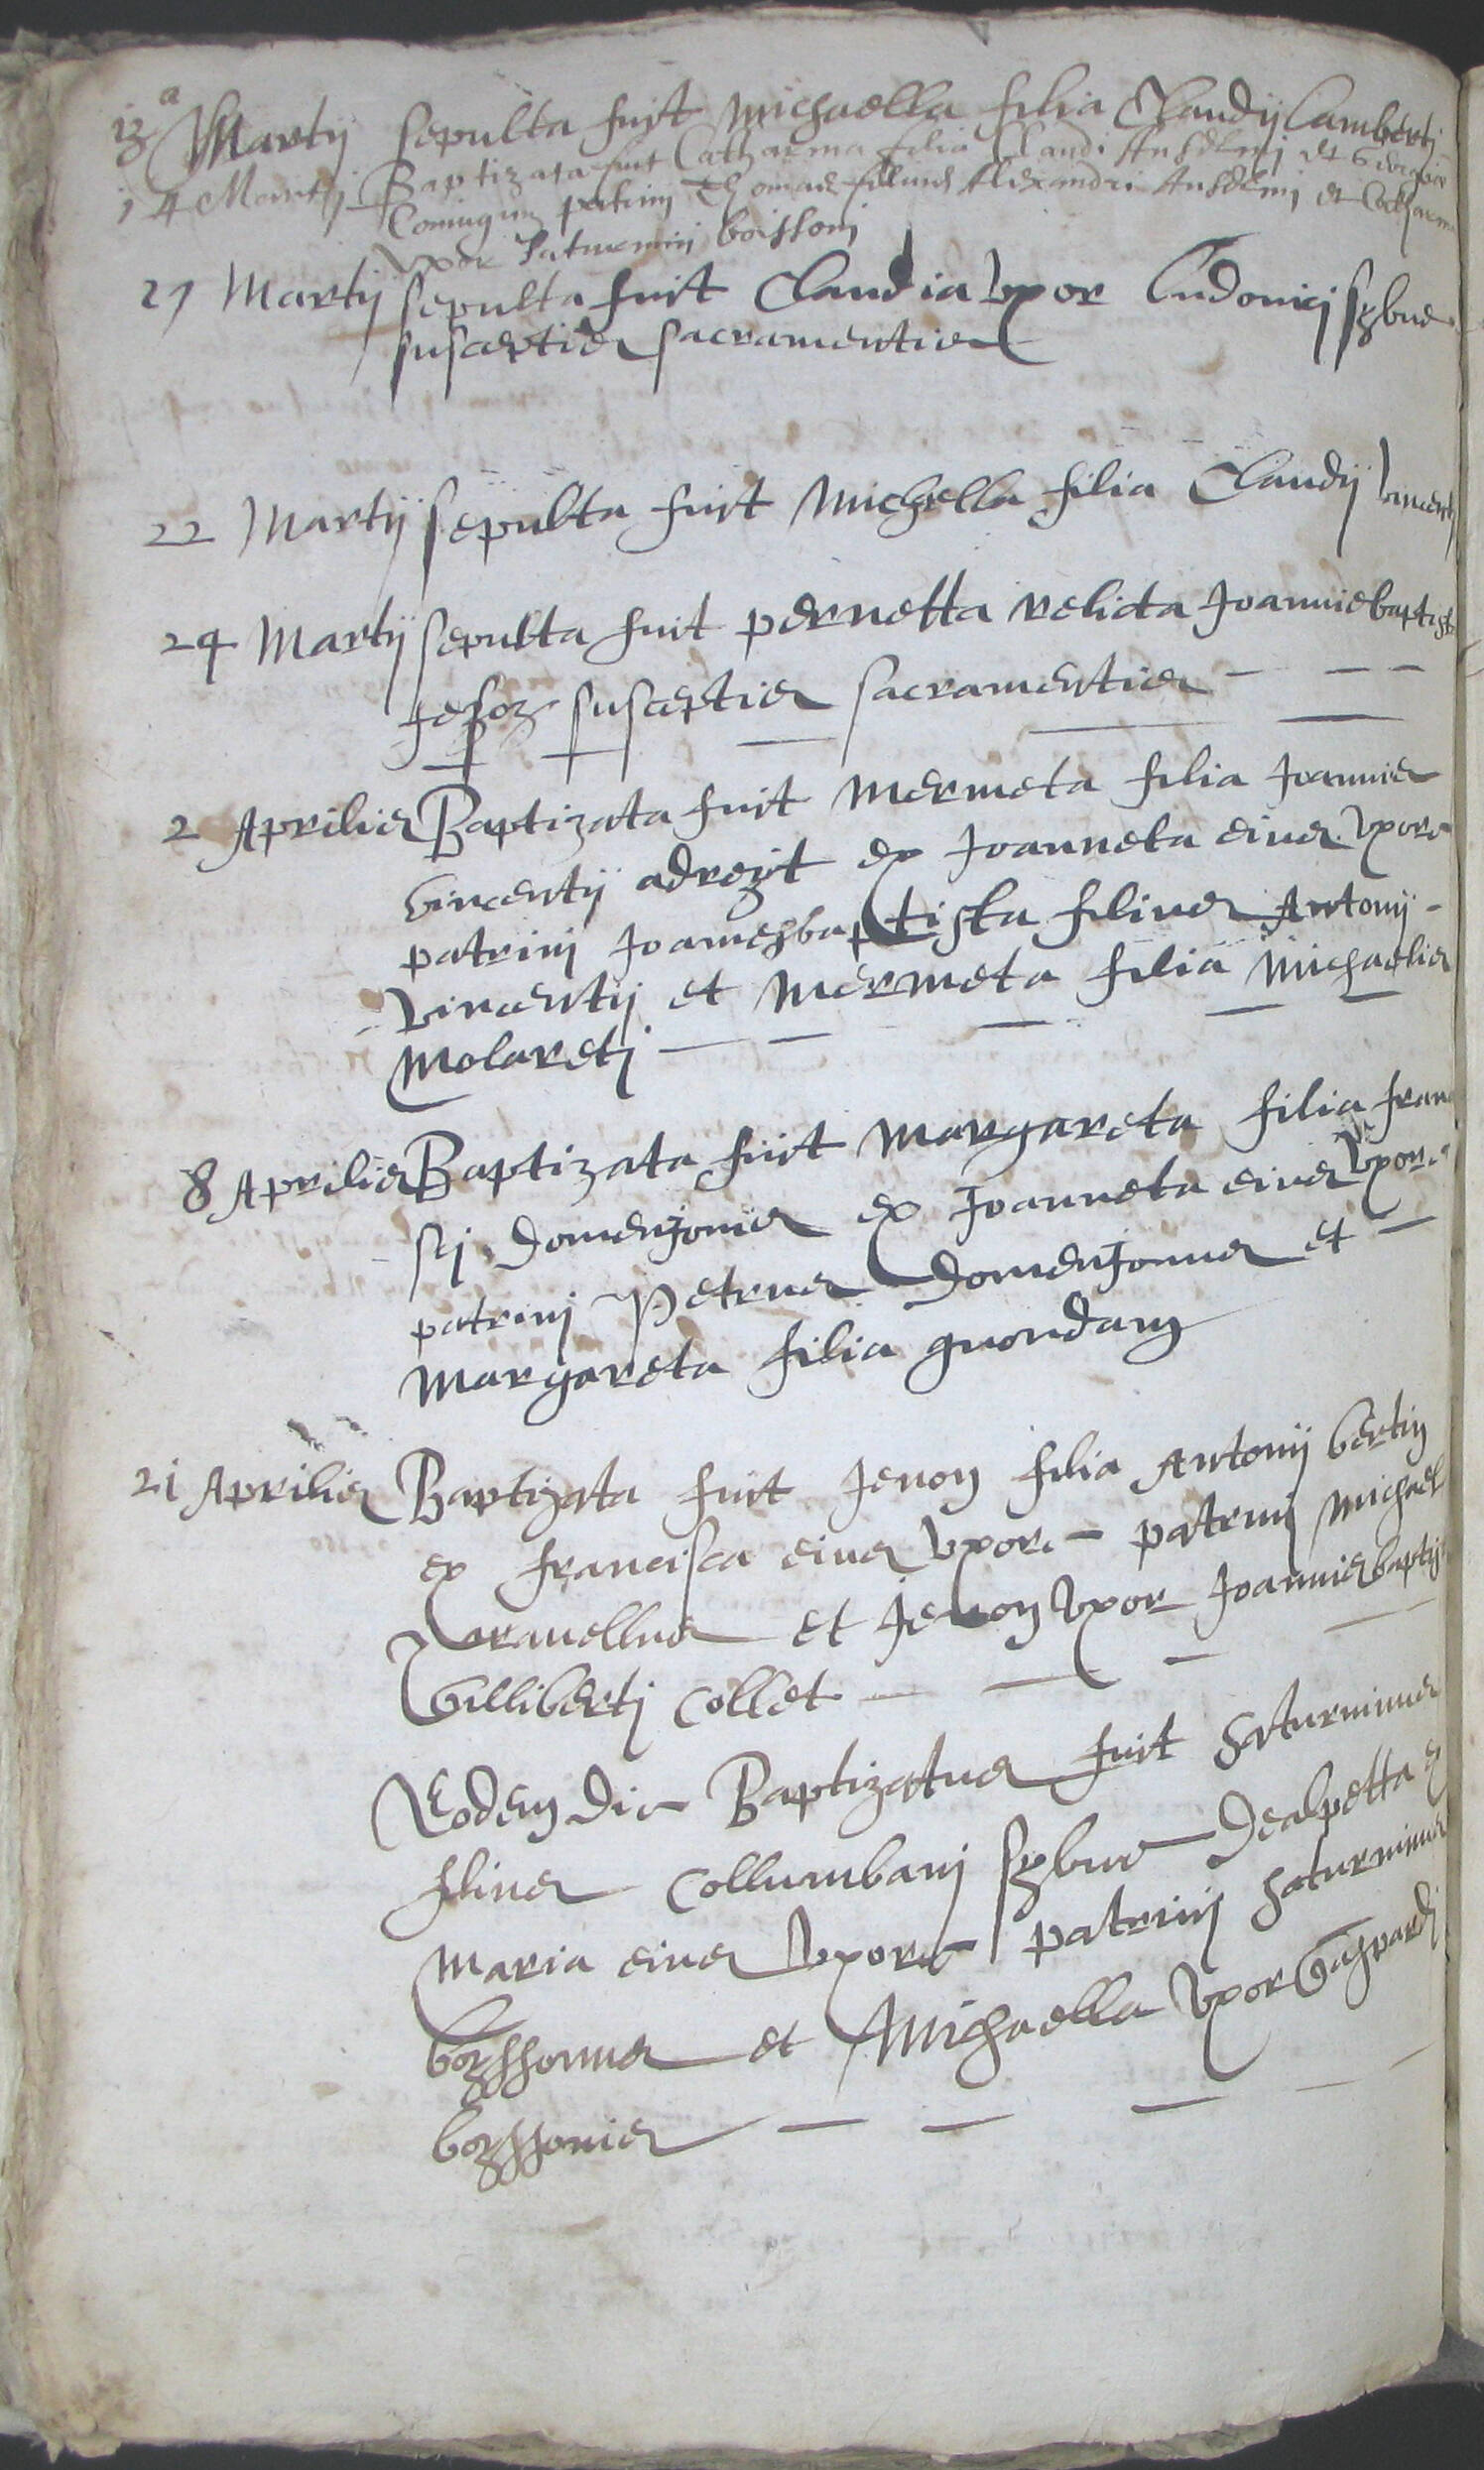 13a Martij sepulta fuit Michaella filia Claudij Lamberti
14 Martij Baptizata fuit Catharina filia Claudi Anselmj et Georgiae
Coniugum patrinj Thomas filius Alexandri Anselmj et Catharina
Vxor Saturninj boissonj
21 Martij sepulta fuit Claudia Vxor Ludovicj
susceptis sacramentis
22 Martij sepulta fuit Michaella filia Claudij Vincentij
24 Martij sepulta fuit pernetta relicta Joannisbaptistae
Jesoz susceptis sacramentis
2 Aprilis Baptizata fuit Mermeta filia Joannis
Vincentij adreyt ex Joanneta eius Vxore
patrinj Joannesbaptista filius Antonij
Vincentij et Mermeta filia Michaelis
Molaretj
8 Aprilis Baptizata fuit Margareta filia Franci
scj Domenjonis ex Joanneta eius Vxore
patrinj Petrus Domenjonus et
Margareta filia quondam
21 Aprilis Baptizata fuit Jenon filia Antonij bertin
ex francisca eius Vxore patrinj Michael
et Jenon Vxor Joannisbaptistae
Gillibertj Collet
Eodem die Baptizatus fuit Saturninus
filius Collumbanj Dealpetta ex
Maria eius Vxore patrinj Saturninus
boyssonus et Michaella Vxor Gaspardj
boyssonis